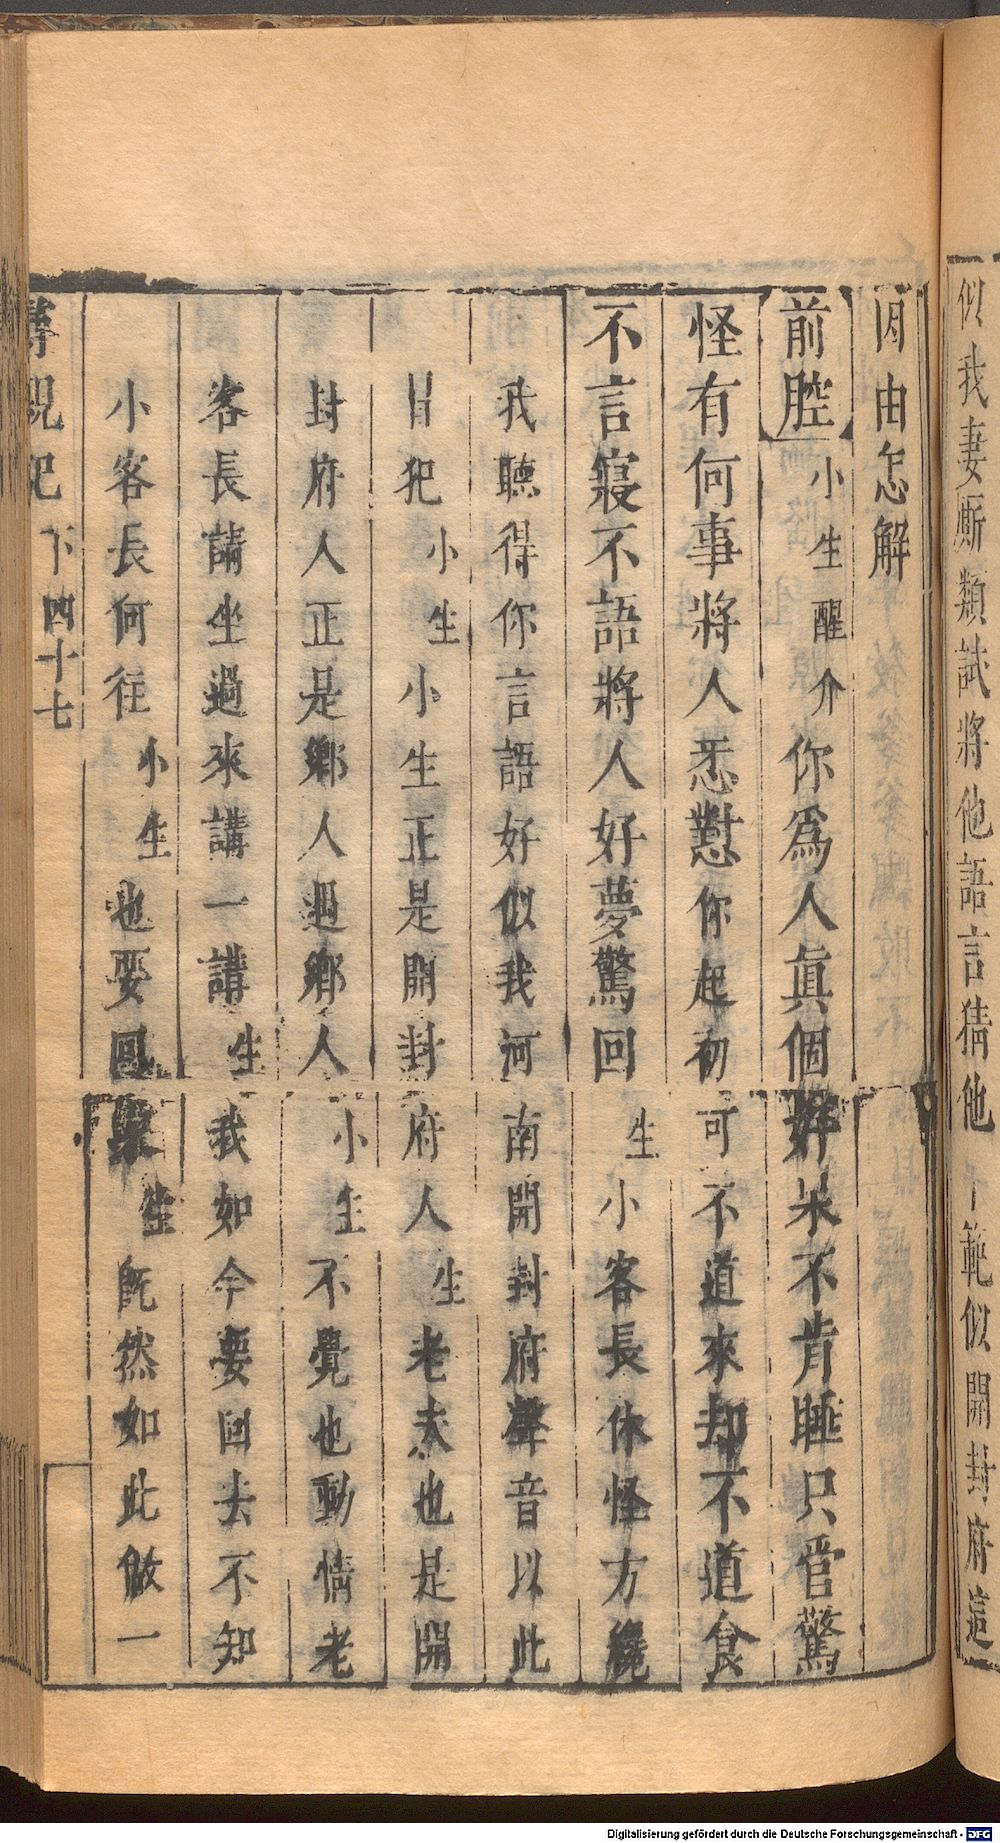 似我妻厮類試將他語言猜他丨範似開封府這
因由怎解
前腔小生醒介你爲人眞個好呆不肯睡只管驚
怪有何事將人悉懟你起初可不道來却不道食
不言寢不語將人好夢驚回生小客長休怪方纔
我聽得你言語好似我河南開封府聲音以此
冒犯小生小生正是開封府人生老夫也是開
封府人正是鄉人遇鄉人小生不覺也動情老
客長請坐過來講一講生我如今要回去不知
小客長何往小生也要回生旣然如此做一
尋親記下四十七
Digitalisierung gefördert durch die Deutsche Forschungsgemeinschaft - DFG